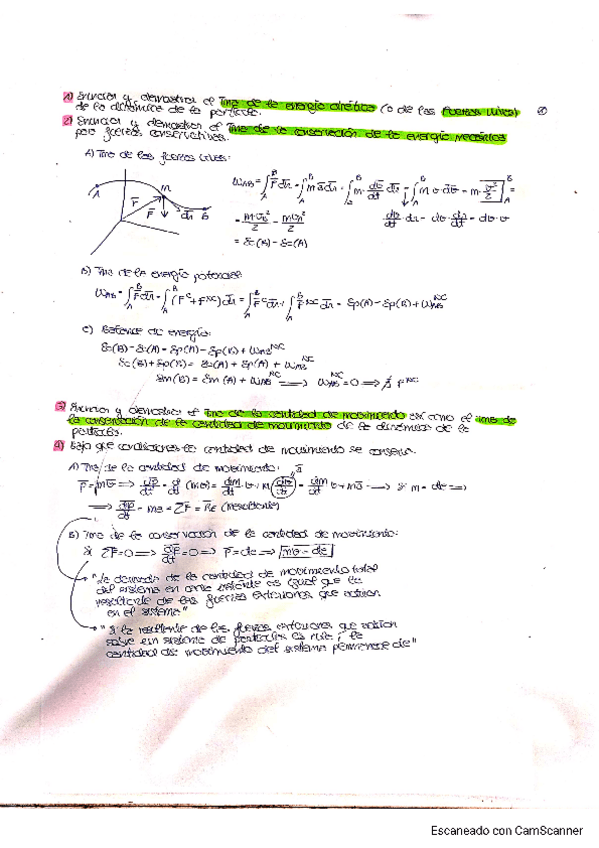 1) Enunciar y demostrar el Tma de la energía cinética (o de las fuerzas vivas)
de la dinámica de la partícula.
2) Enunciar y demostrar el Tma de la conservación de la energía mecánica
para fuerzas conservativas.
A) Tma de las fuerzas vivas:
A m r̄ F̄ dr̄ B
W_AB = ∫_A^B F̄ dr̄ = ∫_A^B m ā dr̄ = ∫_A^B m dv̄/dt dr̄ = ∫_A^B m v̄ dv̄ = m v²/2 ]_A^B =
= m v_B²/2 - m v_A²/2
dv̄/dt dr = dv dr/dt = dv·v
= Ec(B) - Ec(A)
B) Tma de la energía potencial:
W_AB = ∫_A^B F̄ dr̄ = ∫_A^B (F^C + F^NC) dr̄ = ∫_A^B F^C dr̄ + ∫_A^B F^NC dr̄ = Ep(A) - Ep(B) + W_AB^NC
C) Balance de energía:
Ec(B) - Ec(A) = Ep(A) - Ep(B) + W_AB^NC
Ec(B) + Ep(B) = Ec(A) + Ep(A) + W_AB^NC
Em(B) = Em(A) + W_AB^NC ⟹ W_AB^NC = 0 ⟹ ∄ F^NC
3) Enunciar y demostrar el Tma de la cantidad de movimiento así como el tma de
la conservación de la cantidad de movimiento de la dinámica de la
partícula.
4) Bajo que condiciones la cantidad de movimiento se conserva.
A) Tma de la cantidad de movimiento: ā
p̄ = m v̄ ⟹ dp̄/dt = d/dt (m v̄) = dm/dt v̄ + m dv̄/dt = dm/dt v̄ + m ā ⟹ si m = cte ⟹
⟹ dp̄/dt = m ā = ΣF̄ = R̄E (resultante)
B) Tma de la conservación de la cantidad de movimiento:
Si ΣF̄ = 0 ⟹ dp̄/dt = 0 ⟹ p̄ = cte ⟹ m v̄ = cte
"La derivada de la cantidad de movimiento total
del sistema en cada instante es igual que la
resultante de las fuerzas exteriores que actúan
en el sistema"
"Si la resultante de las fuerzas exteriores que actúan
sobre un sistema de partículas es nula, la
cantidad de movimiento del sistema permanece cte"
Escaneado con CamScanner